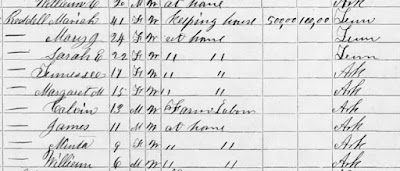 William C 20 M W at home Ark
Mariah 41 F W Keeping house 500 00 100,00 Tenn
— Mary J 24 F W at home Tenn
— Sarah E 22 F W " " Tenn
— Tennessee 17 F W " " Ark
— Margaret M 15 F W " " Ark
— Calvin 13 M W Farm Labor Ark
— James 11 M W at home Ark
— Minta 9 F W " " Ark
— William 6 M W " " Ark